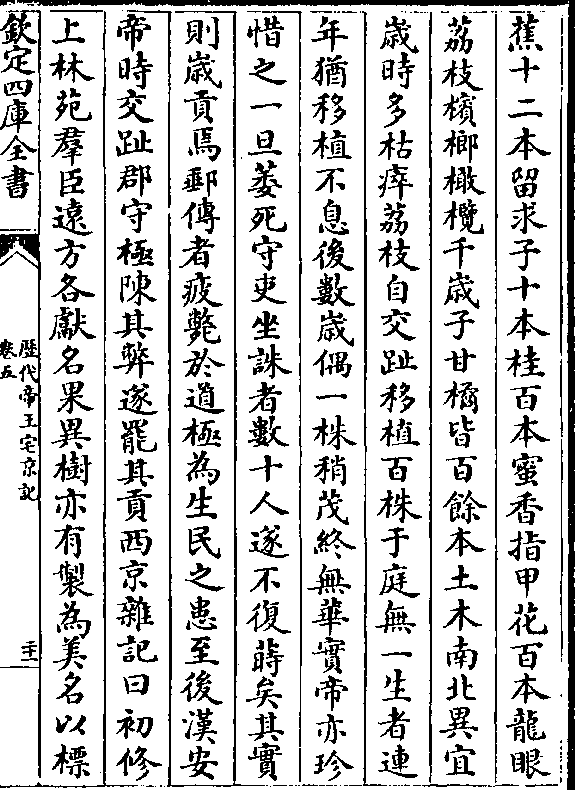 蕉十二本留求子十本桂百本蜜香指甲花百本龍眼
荔枝檳榔橄欖千歳子甘橘皆百餘本土木南北異宜
歳時多枯瘁荔枝自交趾移植百株于庭無一生者連
年猶移植不息後數歳偶一株稍茂終無華實帝亦珍
惜之一旦萎死守吏坐誅者數十人遂不復蒔矣其實
則歳貢焉郵傳者疲斃於道極為生民之患至後漢安
帝時交趾郡守極陳其弊遂罷其貢西京雜記曰初修
上林苑羣臣遠方各獻名果異樹亦有製為美名以標
欽定四庫全書
歴代帝王宅京記
卷五
二十一